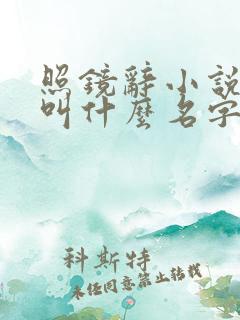 照鏡辭小說
叫什麼名字
科斯特
未经同意禁止转载